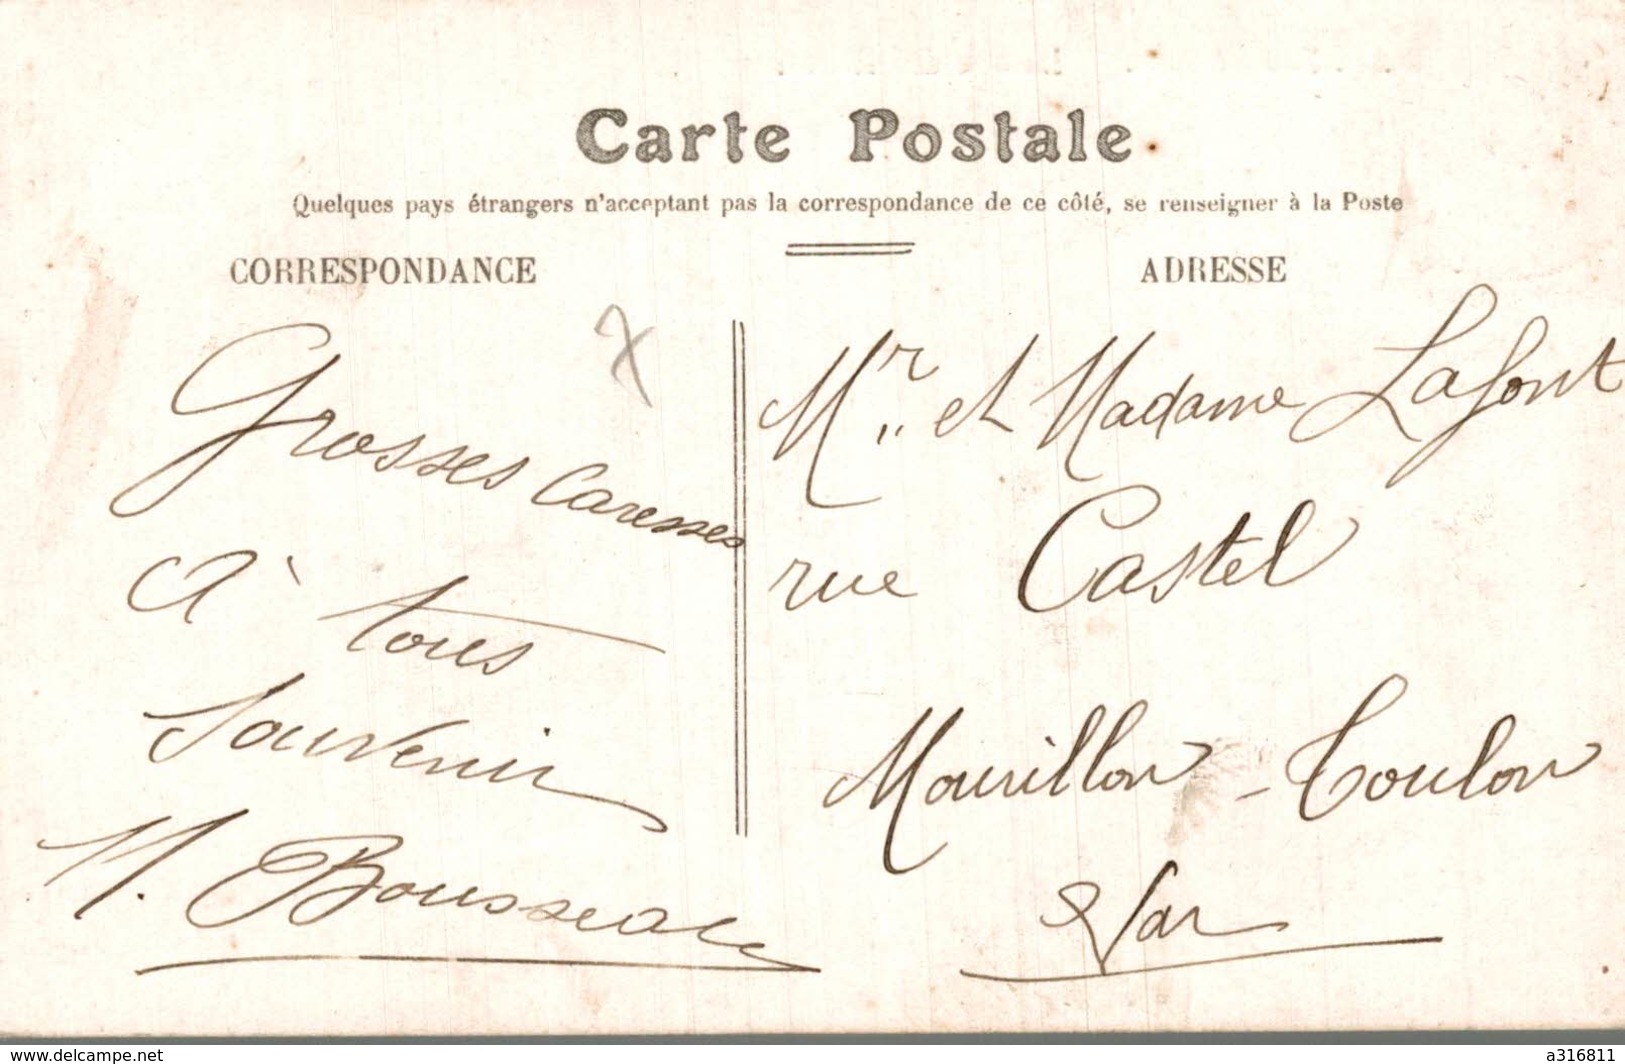 Carte Postale
Quelques pays étrangers n'acceptant pas la correspondance de ce côté, se renseigner à la Poste
CORRESPONDANCE
Grosses Caresses
à tous
Souvenir
M. Bousseau
ADRESSE
Mr et Madame Lafont
rue Castel
Mourillon - Toulon
Var
www.delcampe.net
a316811